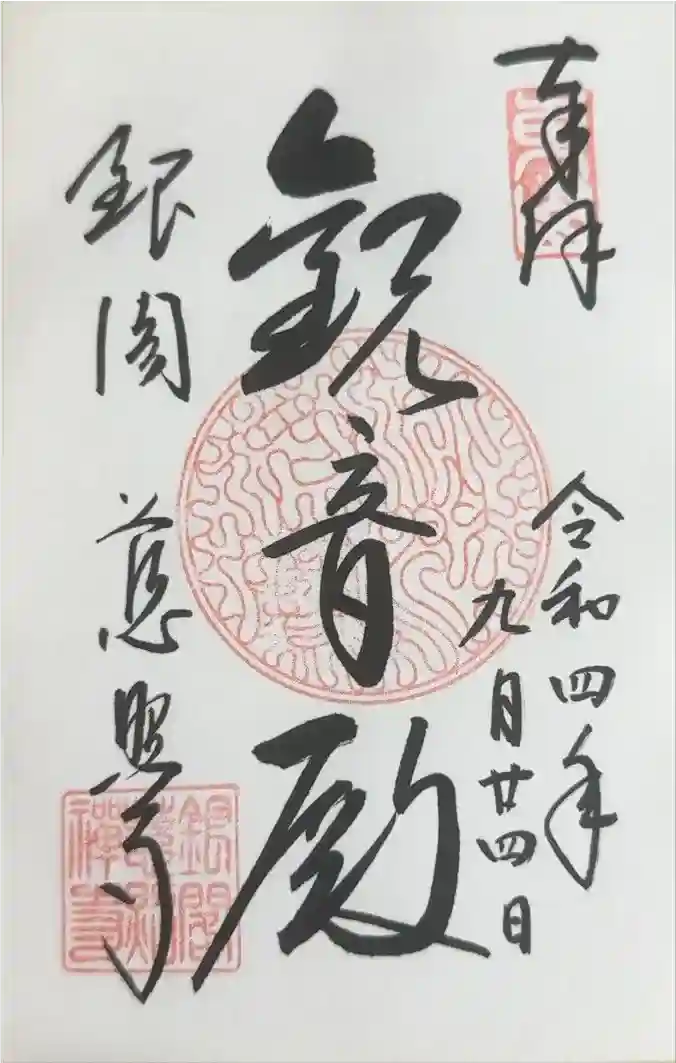 奉拝
令和四年
九月廿四日
観音殿
銀閣
慈照寺
銀閣
慈照
禅寺